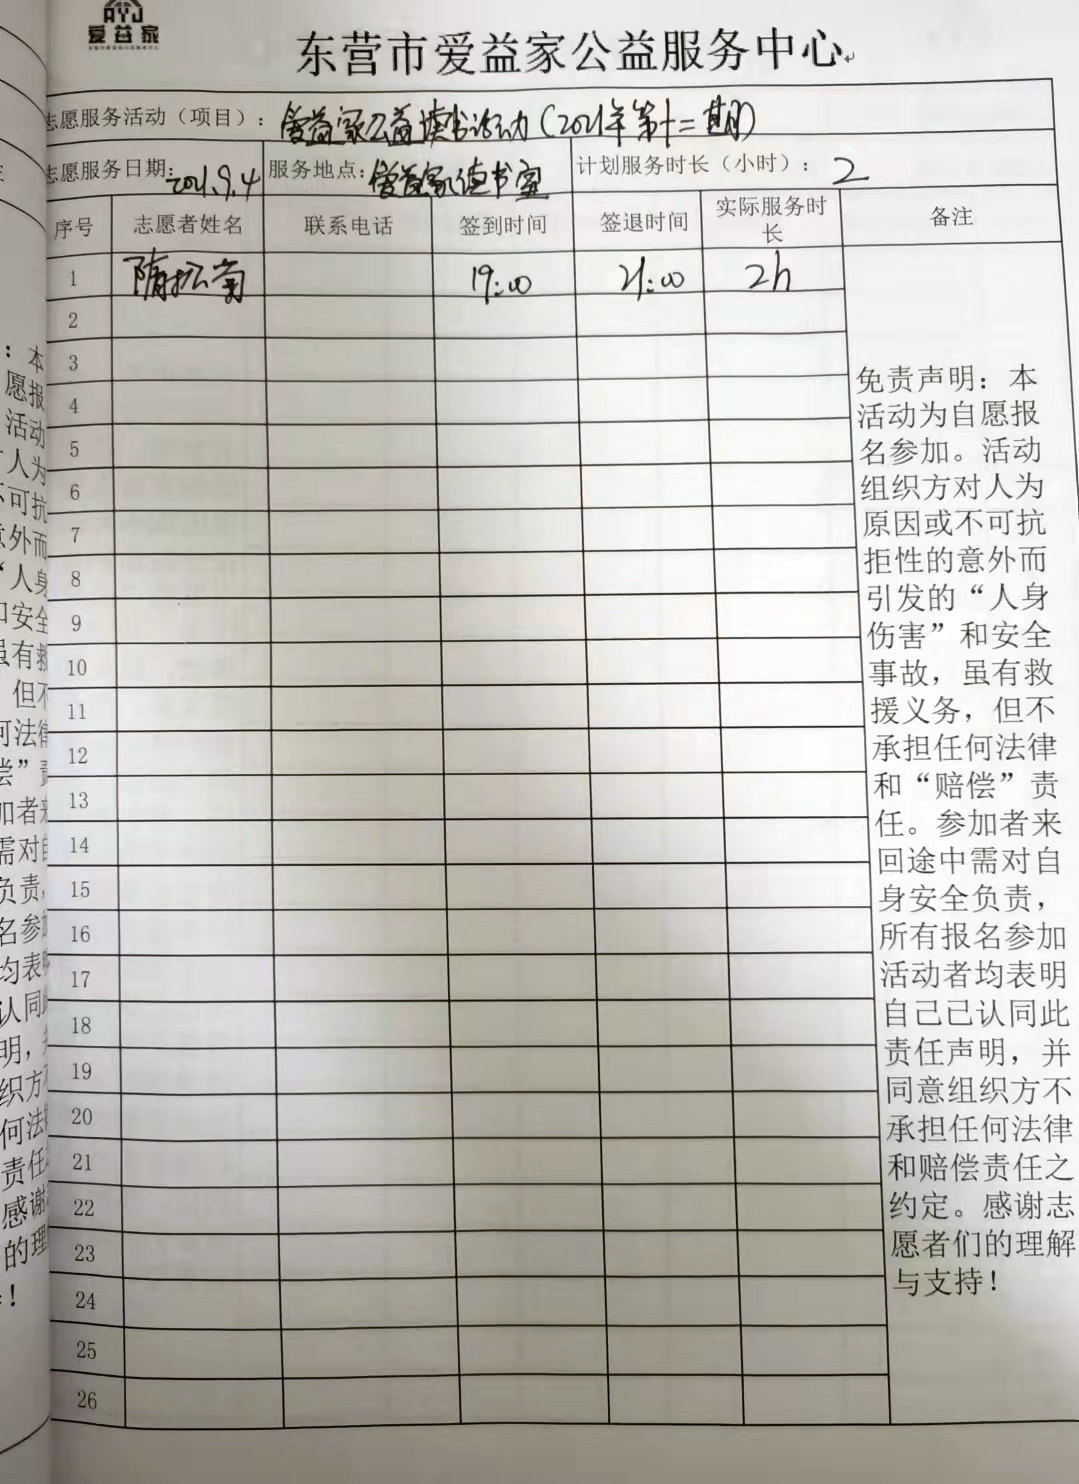 AYJ
爱益家
东营市爱益家公益服务中心
志愿服务活动（项目）：爱益家公益读书活动（2021年第十二期）
志愿服务日期：2021.9.4 服务地点：爱益家读书室 计划服务时长（小时）：2
序号 志愿者姓名 联系电话 签到时间 签退时间 实际服务时长 备注
1 隋松菊 19:00 21:00 2h
2
3
4
5
6
7
8
9
10
11
12
13
14
15
16
17
18
19
20
21
22
23
24
25
26
免责声明：本
活动为自愿报
名参加。活动
组织方对人为
原因或不可抗
拒性的意外而
引发的“人身
伤害”和安全
事故，虽有救
援义务，但不
承担任何法律
和“赔偿”责
任。参加者来
回途中需对自
身安全负责，
所有报名参加
活动者均表明
自己已认同此
责任声明，并
同意组织方不
承担任何法律
和赔偿责任之
约定。感谢志
愿者们的理解
与支持！